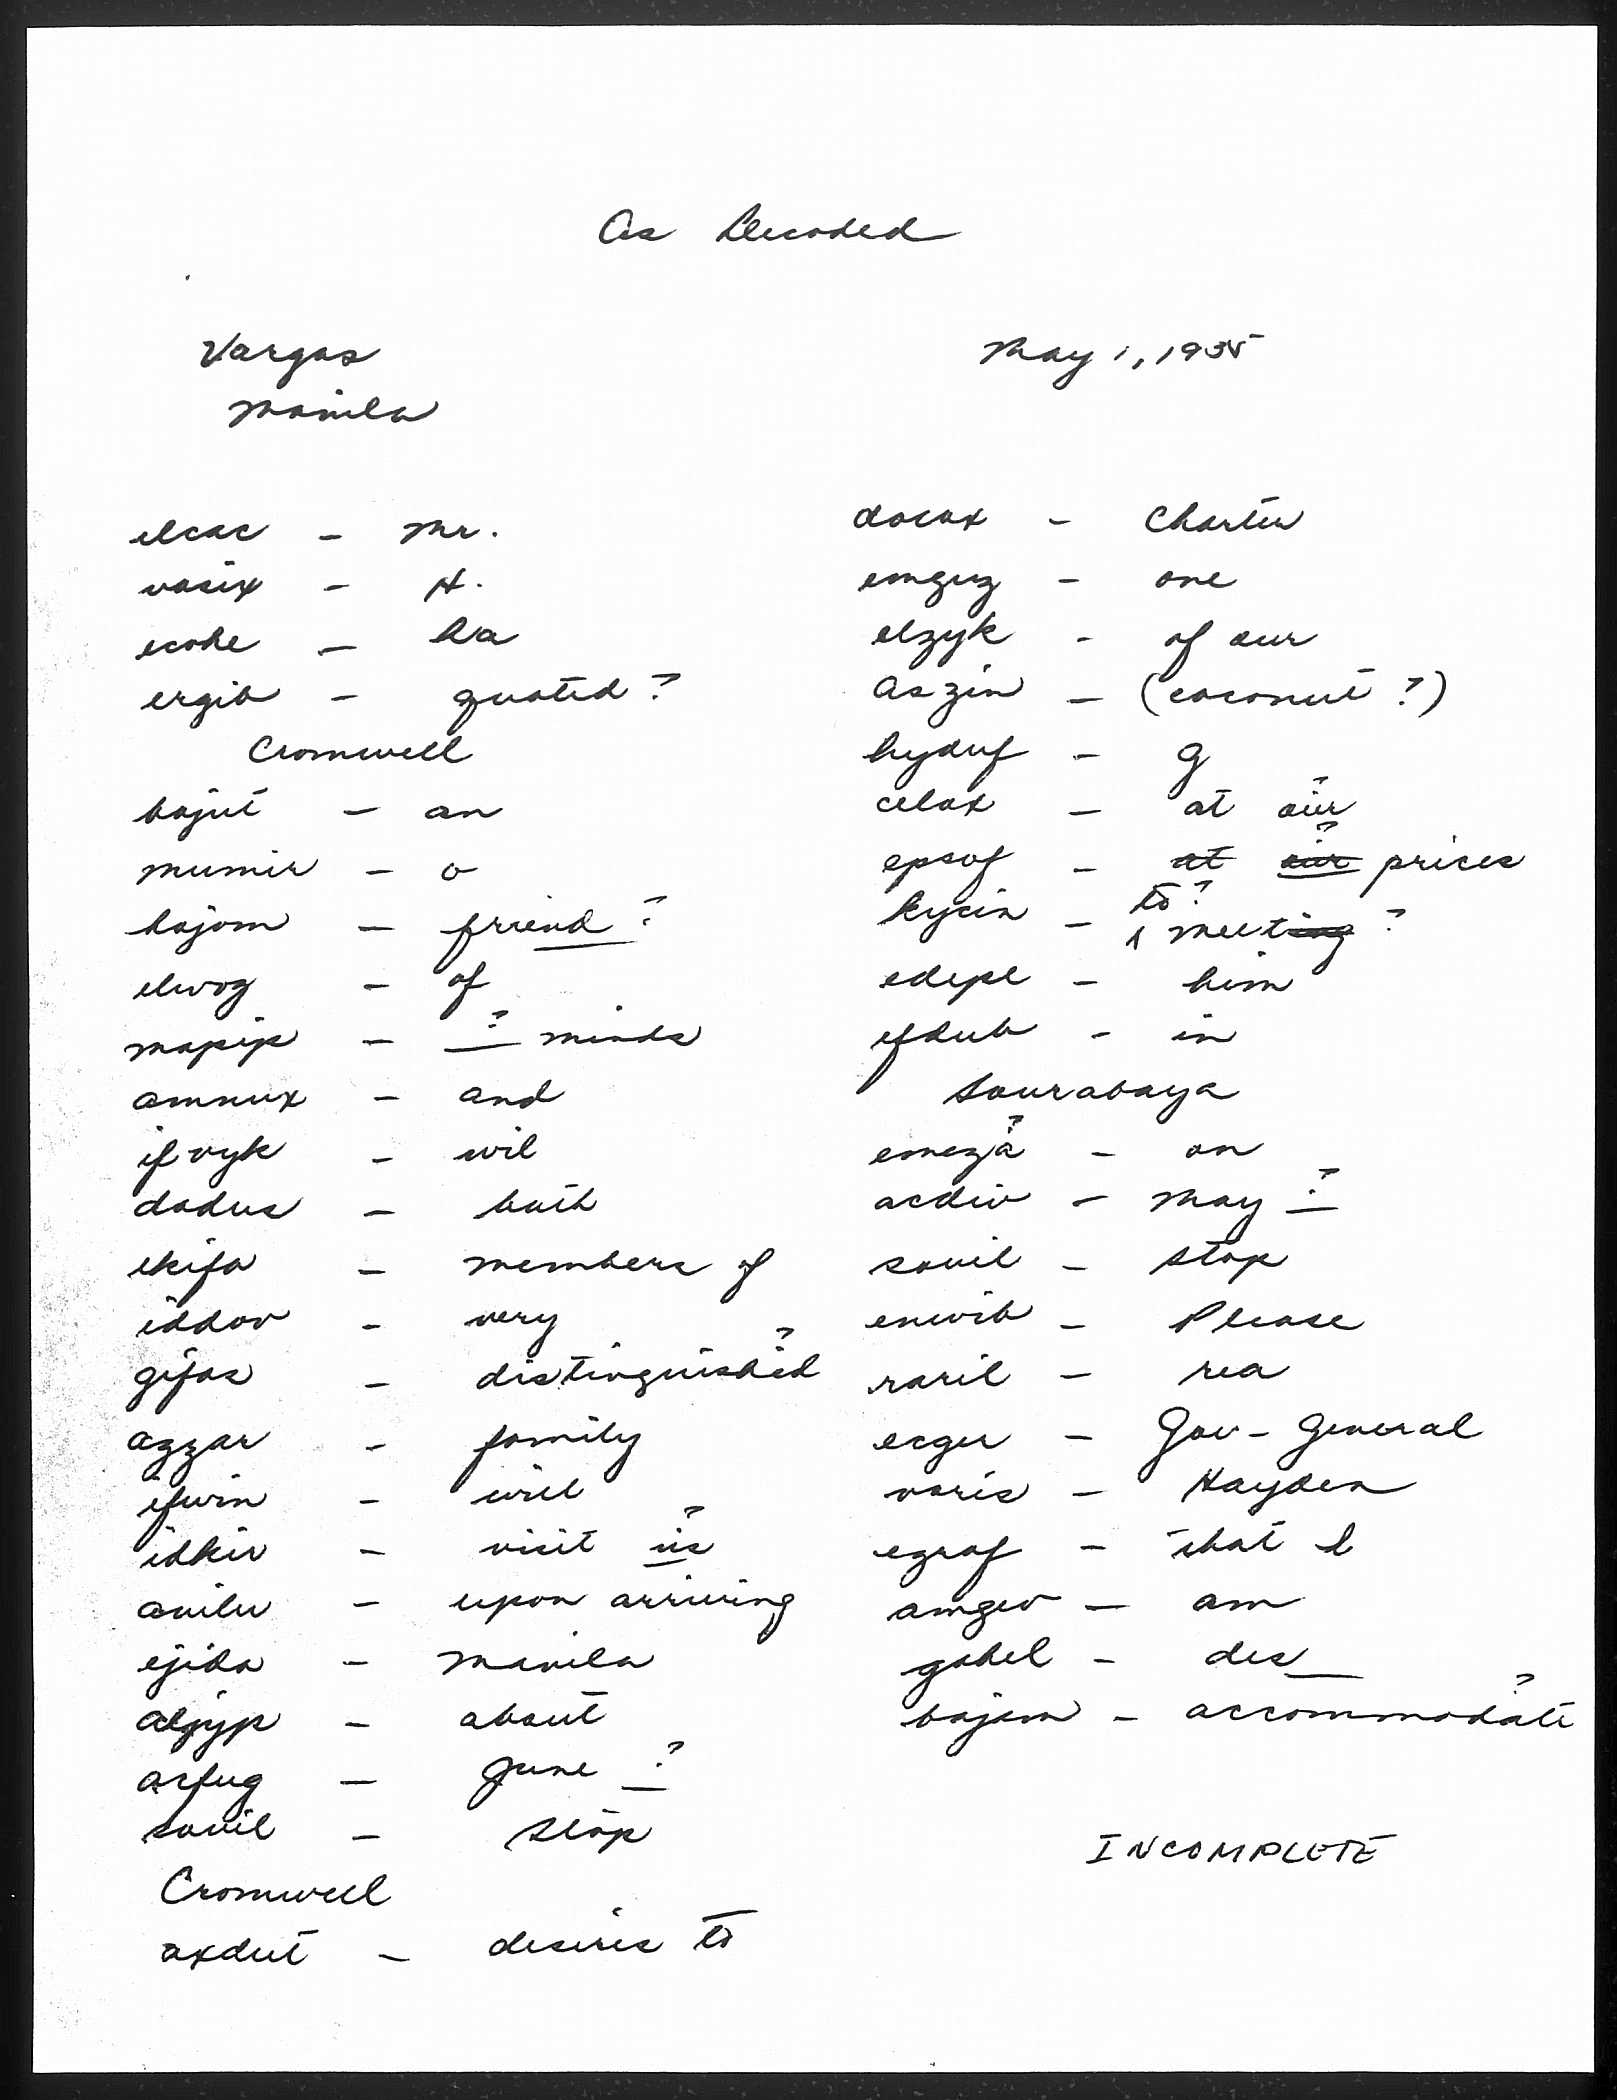 As Decoded
Vargas
May 1, 1935
Manila
elcac - Mr.
vasix - H.
ecohe - ha
ergib - quoted?
Cromwell
bajut - an
mumir - o
hajom - friend?
elwog - of
mapip - ? minds
amnux - and
ifvyk - wil
dodus - both
ekifa - members of
iddov - very
gifas - distinguished ?
azzar - family
ifwin - will
idkiv - visit us ?
avilu - upon arriving
ejida - Manila
aljyp - about
arfug - June ?
sovil - stop
Cromwell
axdut - desires to
docax - Charter
emguz - one
elzyk - of our
aszin - (coconut?)
hyduf - g
celax - at our ?
epsof - at our ? prices
kycin - to? meeting ?
edepl - him
efdub - in
Sourabaya
emeza ? - on
acdiv - May ?
sovil - stop
enwib - Please
raril - rea
ecger - Gov-General
varis - Hayden
egraf - that I
amgev - am
gahel - des
bajam - accommodate ?
INCOMPLETE